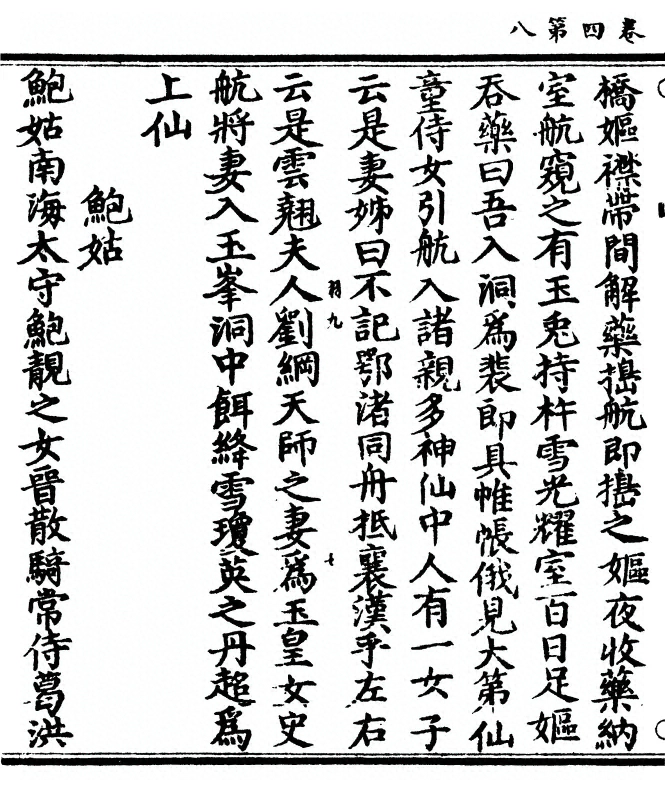 卷四第八
橋嫗襟帶間解藥搗航即擣之嫗夜收藥納
室航窺之有玉兎持杵雪光耀室百日足嫗
吞藥曰吾入洞爲裴郎具帷帳俄見大第仙
童侍女引航入諸親多神仙中人有一女子
云是妻姊曰不記鄂渚同舟抵襄漢乎左右
云是雲翹夫人劉綱天師之妻爲玉皇女史
航將妻入玉峯洞中餌絳雪瓊英之丹超爲
上仙
鮑姑
鮑姑南海太守鮑靚之女晉散騎常侍葛洪
羽九
七